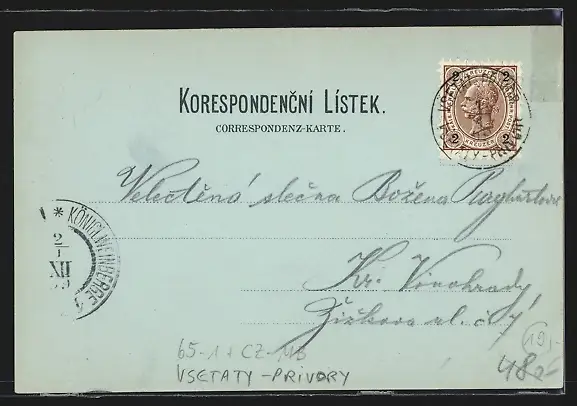 KORESPONDENČNÍ LÍSTEK.
CORRESPONDENZ-KARTE.
2 2
2 KREUZER 2
VŠETATY-PŘÍVORY
Velectěná slečna Božena
Kr. Vinohrady
Žižkova ul. č.
* KÖNIGL. WEINBERGE
2
XII
65-1+CZ-MB
VSETATY-PRIVORY
19,-
48